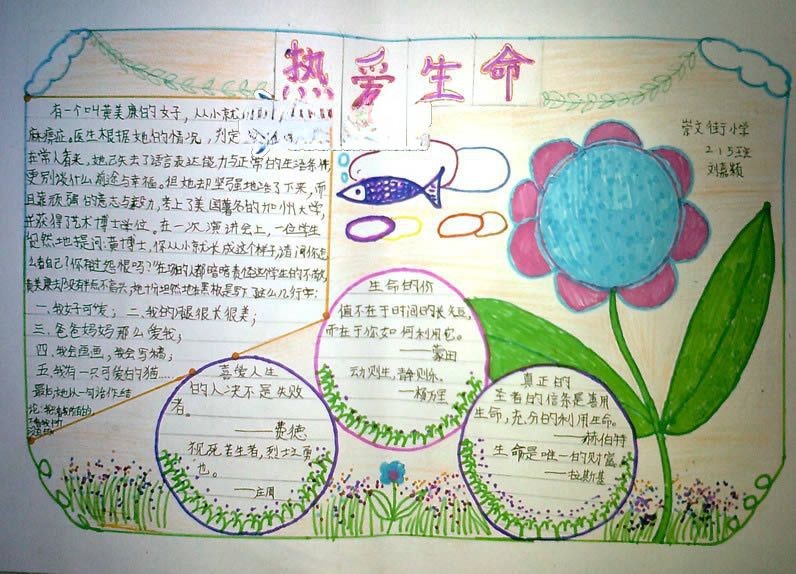 热爱生命
有一个叫黄美廉的女子，从小就
麻痹症。医生根据她的情况，判定
在常人看来，她已失去了语言表达能力与正常的生活条件
更别谈什么前途与幸福。但她却坚强地活了下来，而
且靠顽强的意志与毅力，考上了美国著名的加州大学，
并获得了艺术博士学位。在一次演讲会上，一位学生
贸然地提问：黄博士，你从小就长成这个样子，请问你怎
么看自己？你有过怨恨吗？"在场的人都暗暗责怪这学生的不敬，
黄美廉却没有半点不高兴，她十分坦然地在黑板上写下这么几行字：
一、我好可爱； 二、我的腿很长很美；
三、爸爸妈妈那么爱我；
四、我会画画，我会写稿；
五、我有一只可爱的猫……
最后，她以一句话作结
论：我只看我所有的
崇文街小学
215班
刘嘉颖
生命的价
值不在于时间的长短，
而在于你如何利用它。
——蒙田
动则生，静则乐。
——杨万里
喜爱人生
的人决不是失败
者。
——费德
视死若生者，烈士之勇
也。
——庄周
真正的
王者的信条是善用
生命，充分的利用生命。
——赫伯特
生命是唯一的财富。
——拉斯基